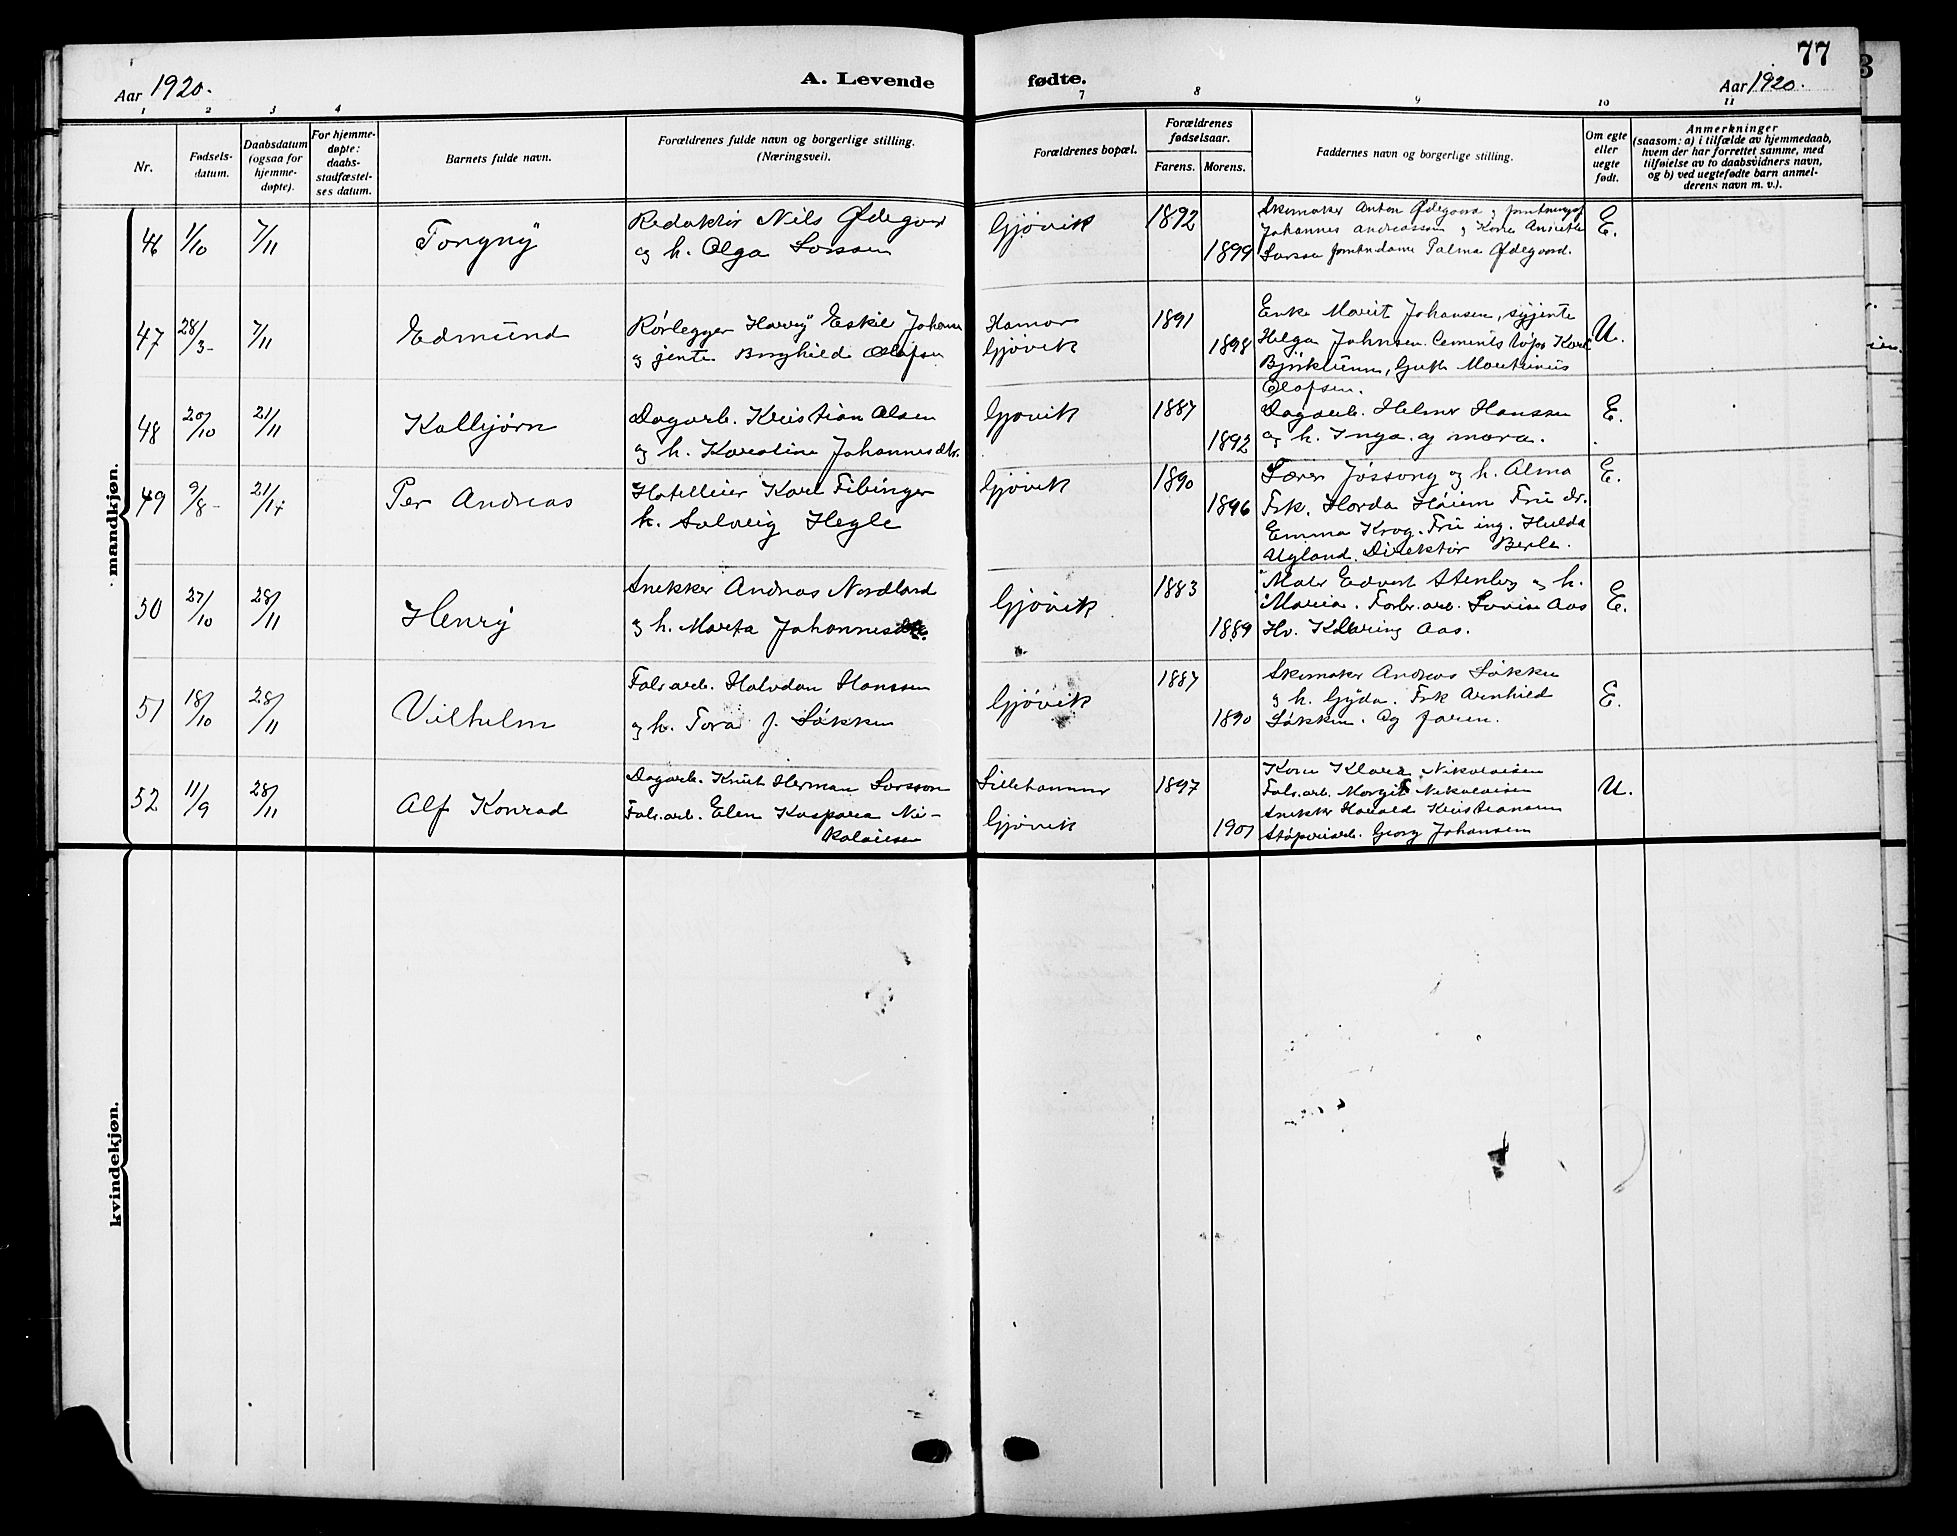 77
3
Aar 1920.
A. Levende
fødte.
Aar 1920.
1 2 3 4 7 8 9 10 11
Nr.
Fødsels-
datum.
Daabsdatum
(ogsaa for
hjemme-
døpte).
For hjemme-
døpte:
daabs-
stadfæstel-
ses datum.
Barnets fulde navn.
Forældrenes fulde navn og borgerlige stilling.
(Næringsvei).
Forældrenes bopæl.
Forældrenes
fødselsaar.
Farens. Morens.
Faddernes navn og borgerlige stilling.
Om egte
eller
uegte
født.
Anmerkninger
(saasom: a) i tilfælde av hjemmedaab,
hvem der har forrettet samme, med
tilføielse av to daabsvidners navn,
og b) ved uegtefødte barn anmel-
derens navn m. v.).
mandkjøn.
46 1/10 7/11 Torgny
Redaktør Nils Ødegard
og h. Olga Larsen
Gjøvik 1892 1899
Skomaker Anton Ødegaard
Johannes Andreassen og Kone
Larsen Palma Ødegaard.
E.
47 28/3- 7/11 Edmund
Rørlegger Harry Eskil Johans
og jente Borghild Olafsen
Hamar
Gjøvik
1891 1898
Enke Marit Johansen, syjente
Helga Johnsen. Cementstøper Karl
Gutk. Martinius
Olafsen.
U.
48 20/10 21/11 Kolbjørn
Dagarb. Kristian Olsen
og h. Karoline Johannesdtr.
Gjøvik 1887 1892
Dagarb. Helmer Hanssen
og h. Inga. og mora.
E.
49 9/8- 21/11 Per Andreas
Hotelleier Karl Fibinger
h. Solveig Hegle
Gjøvik 1890 1896
Lærer Jøssong og h. Alma
Frk. Horda Høiem Fru dr.
Emma Krog. Fru ing. Hulda
Ugland. Direktør Berle.
E.
50 27/10 28/11 Henry
Snekker Andreas Nordland
og h. Marta Johannesdtr.
Gjøvik 1883 1889
Maler Edvart Stenberg og h.
Maria. Fabr.arb. Lovise Aas
Hv. Klaring Aas.
E.
51 18/10 28/11 Vilhelm
Fabr.arb. Halvdan Hanssen
og h. Tora f. Løkken
Gjøvik 1887 1890
Skomaker Andreas Løkken
og h. Gyda. Frk Arnhild
Løkken. Og faren.
E.
52 11/9 28/11 Alf Konrad
Dagarb. Knut Herman Larsson
Fabr.arb. Elen Kaspara Ni-
kolaisen
Lillehammer
Gjøvik
1897 1901
Kone Klara Nikolaisen
Fabr.arb. Margit Nikolaisen
Snekker Harald Kristiansen
Støperiarb. Georg Johansen
U.
kvindekjøn.